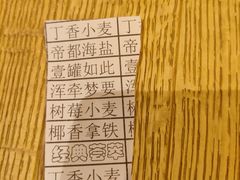 丁香小麦 丁
帝都海盐 帝
壹罐如此 壹
浑牵梦要 浑
树莓小麦 树
椰香拿铁 椰
经典荟萃
丁香小麦